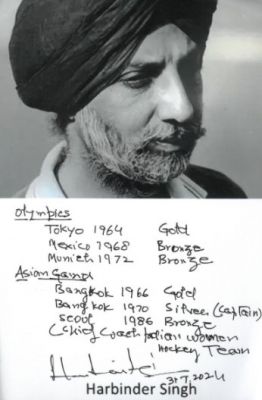 Olympics
Tokyo 1964 Gold
Mexico 1968 Bronze
Munich 1972 Bronze
Asian Games
Bangkok 1966 Gold
Bangkok 1970 Silver (Captain)
Seoul 1986 Bronze
(Chief Coach Indian Women
Hockey Team
31.7.2024
Harbinder Singh